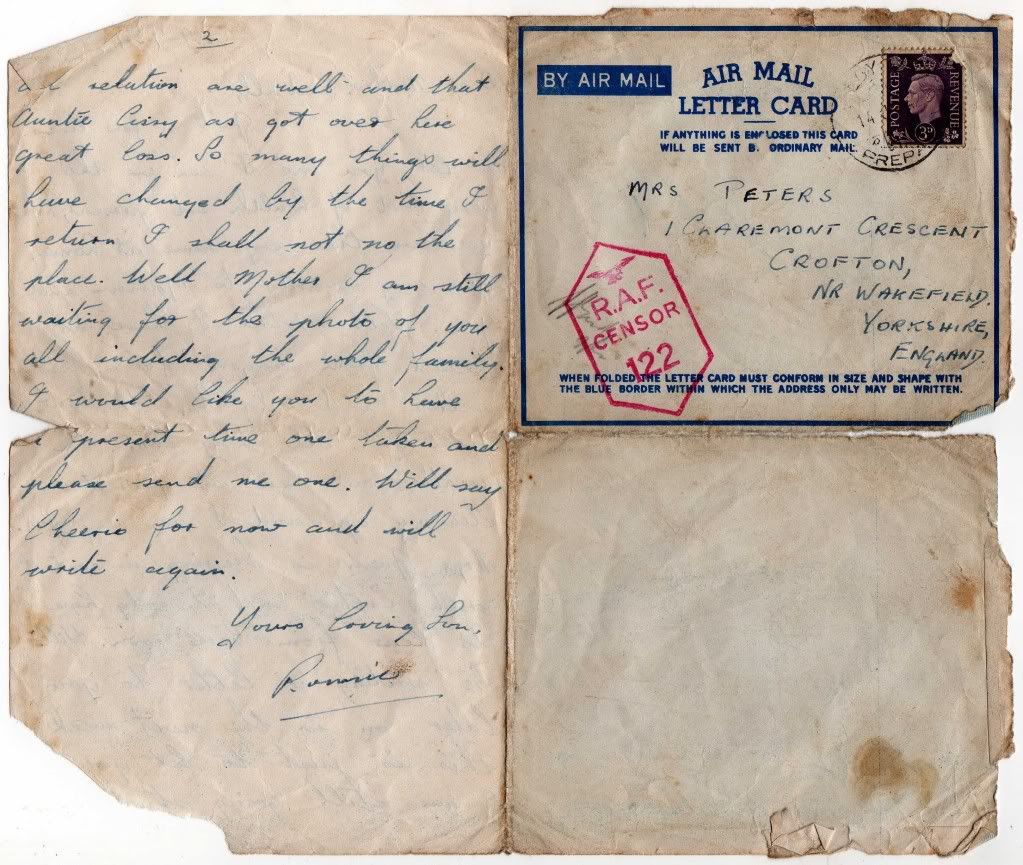 2
relation are well and that
Auntie Cissy as got over here
great loss. So many things will
have changed by the time I
return I shall not no the
place. Well Mother I am still
waiting for the photo of you
all including the whole family.
I would like you to have
a present time one taken and
please send me one. Will say
Cheerio for now and will
write again.
Yours Loving Son,
Ronnie
BY AIR MAIL
AIR MAIL
LETTER CARD
IF ANYTHING IS ENCLOSED THIS CARD
WILL BE SENT BY ORDINARY MAIL.
POSTAGE
REVENUE
3D
14
PREPA
MRS PETERS
1 CLAREMONT CRESCENT
CROFTON,
NR WAKEFIELD.
YORKSHIRE,
ENGLAND.
R.A.F.
CENSOR
122
WHEN FOLDED THE LETTER CARD MUST CONFORM IN SIZE AND SHAPE WITH
THE BLUE BORDER WITHIN WHICH THE ADDRESS ONLY MAY BE WRITTEN.